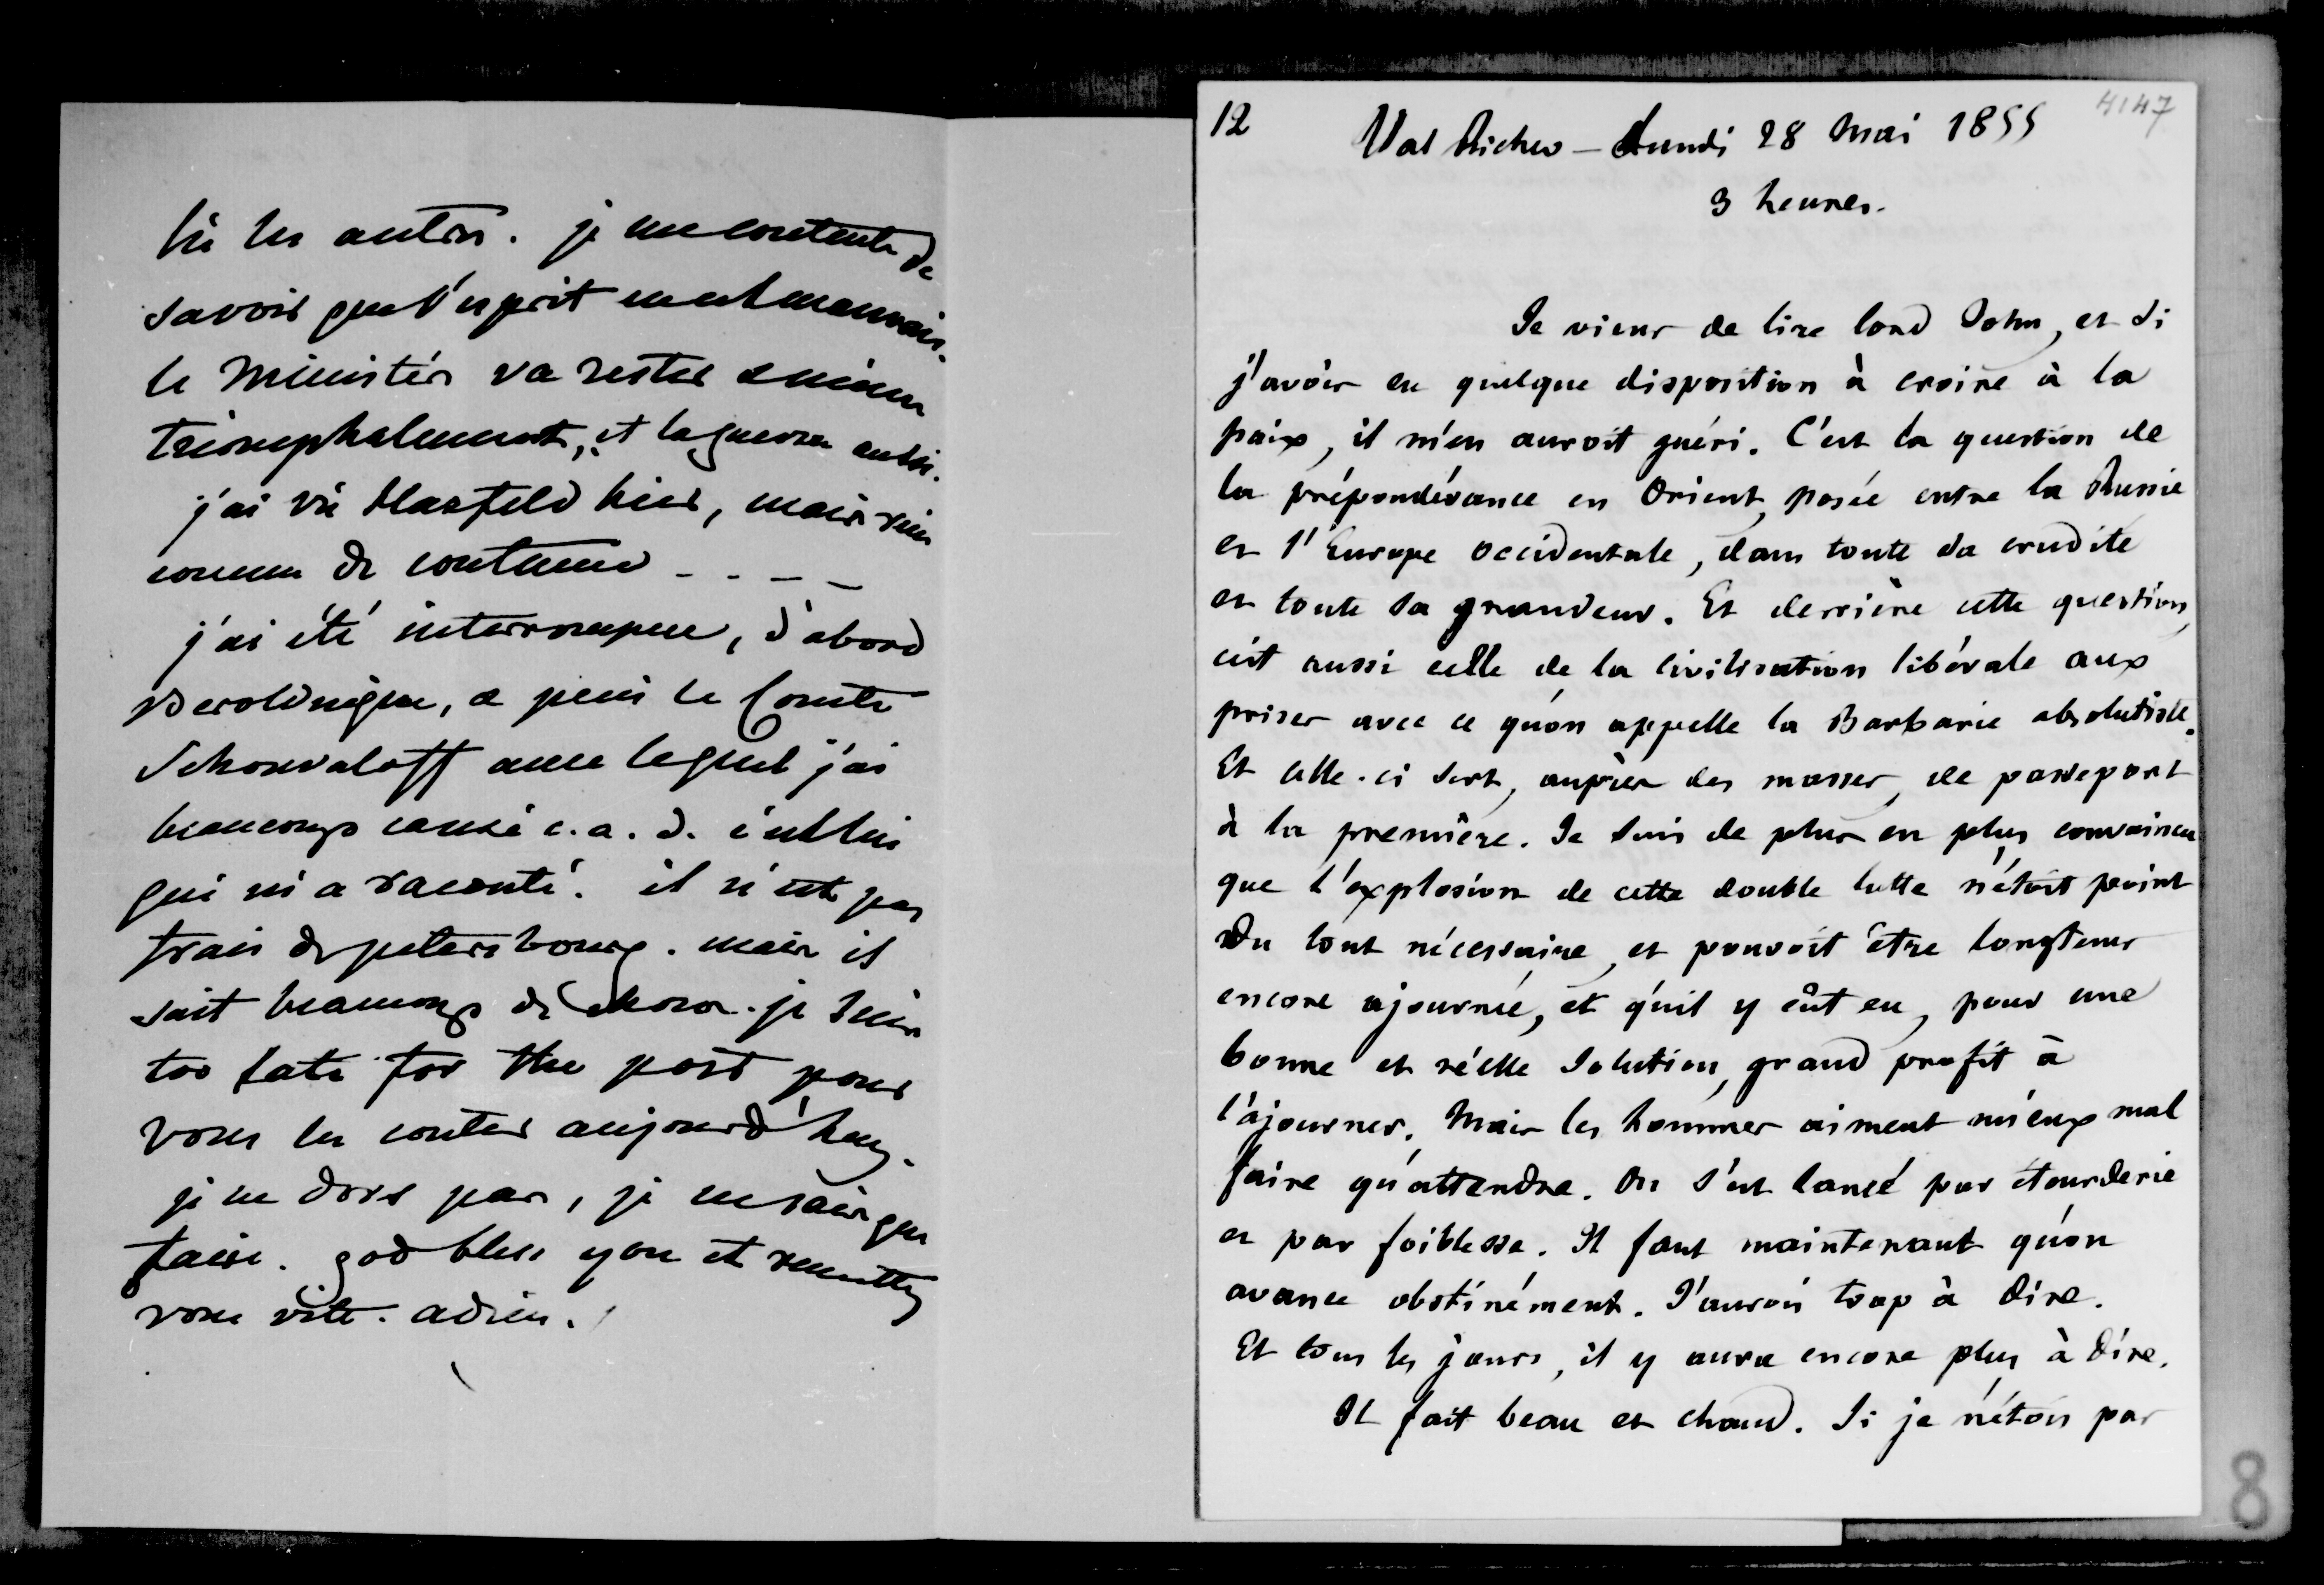 lû les autres. je me contente de
savoir que l'esprit est mauvais.
le Ministère va rester
triomphalement, et la guerre aussi.
j'ai vû Hatzfeld hier, mais rien
comme de coutume - - - -
j'ai été interrompue, d'abord
, a puis le Comte
Schouvaloff avec lequel j'ai
beaucoup causé c. a. d. c'est lui
qui m'a raconté. il n'est pas
frais de petersbourg. mais il
sait beaucoup de choses. je suis
too late for the post pour
vous les conter aujourd'huy.
je ne dors pas, je ne sais que
faire. god bless you et remettez
vous vite. adieu.
12
4147
Val Richer - Lundi 28 Mai 1855
3 heures.
Je viens de lire lord John, et si
j'avois eu quelque disposition à croire à la
paix, il m'en auroit guéri. C'est la question de
la prépondérance en Orient, posée entre la Russie
et l'Europe occidentale, dans toute sa crudité
et toute sa grandeur. Et derrière cette question,
c'est aussi celle de la civilisation libérale aux
prises avec ce qu'on appelle la Barbarie absolutiste.
Et celle-ci sert, auprès des masses, de passeport
à la première. Je suis de plus en plus convaincu
que l'explosion de cette double lutte n'étoit point
du tout nécessaire, et pouvoit être longtems
encore ajournée, et qu'il y eût eu, pour une
bonne et réelle solution, grand profit à
l'ajourner. Mais les hommes aiment mieux mal
faire qu'attendre. On s'est lancé par étourderie
et par foiblesse. Il faut maintenant qu'on
avance obstinément. J'aurois trop à dire.
Et tous les jours, il y aura encore plus à dire.
Il fait beau et chaud. Si je n'étois pas
8